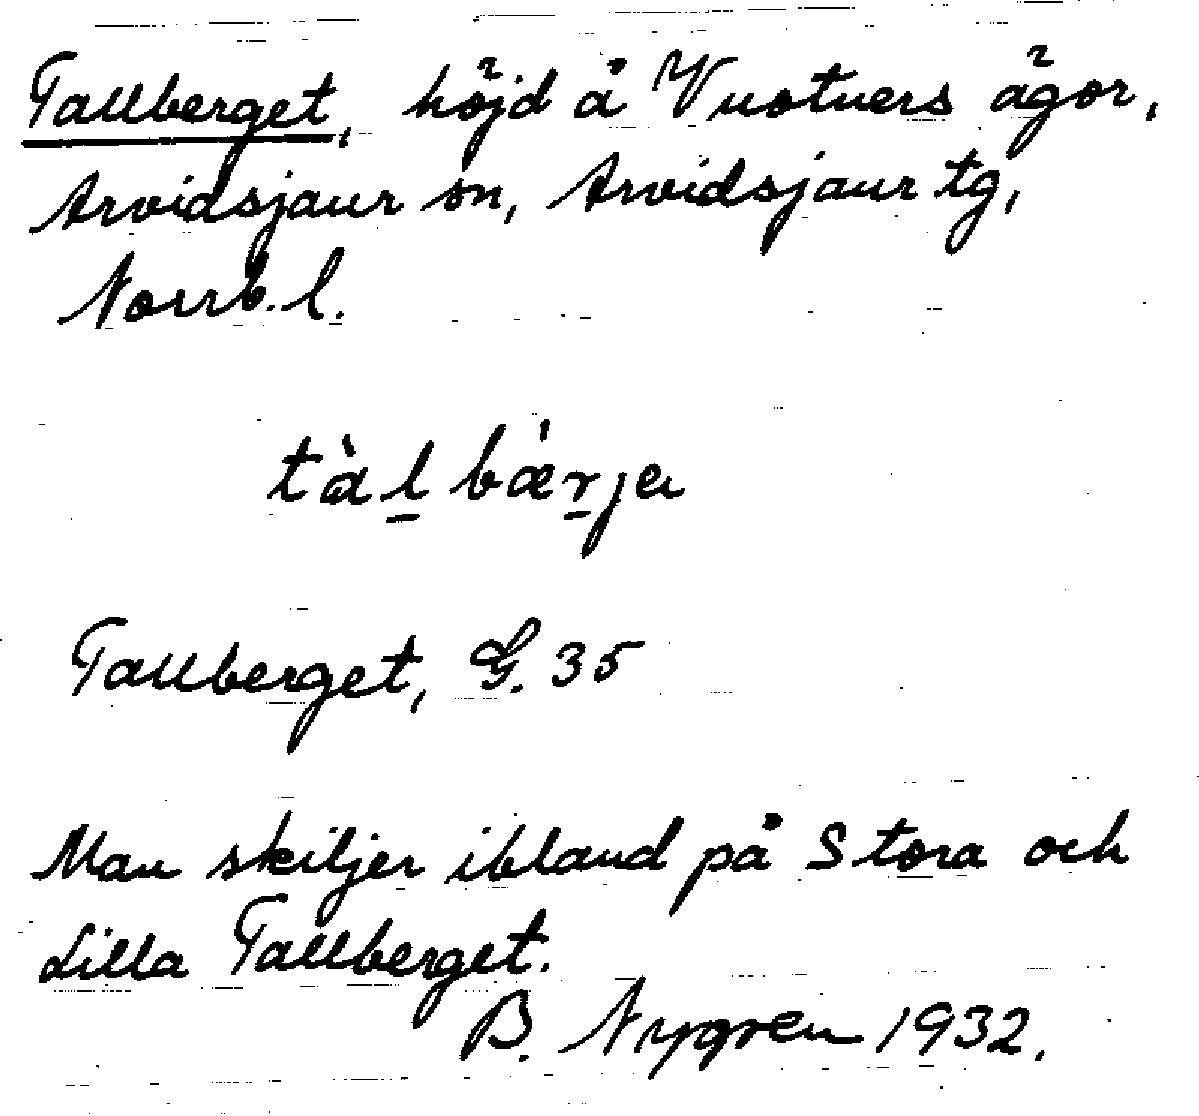 Tallberget, höjd å Vuotners ägor,
Arvidsjaur sn, Arvidsjaur tg,
Norrb. l.
tàl̲ bæ̀r̲ja
Tallberget, G. 35
Man skiljer ibland på Stora och
Lilla Tallberget.
B. Nygren 1932.